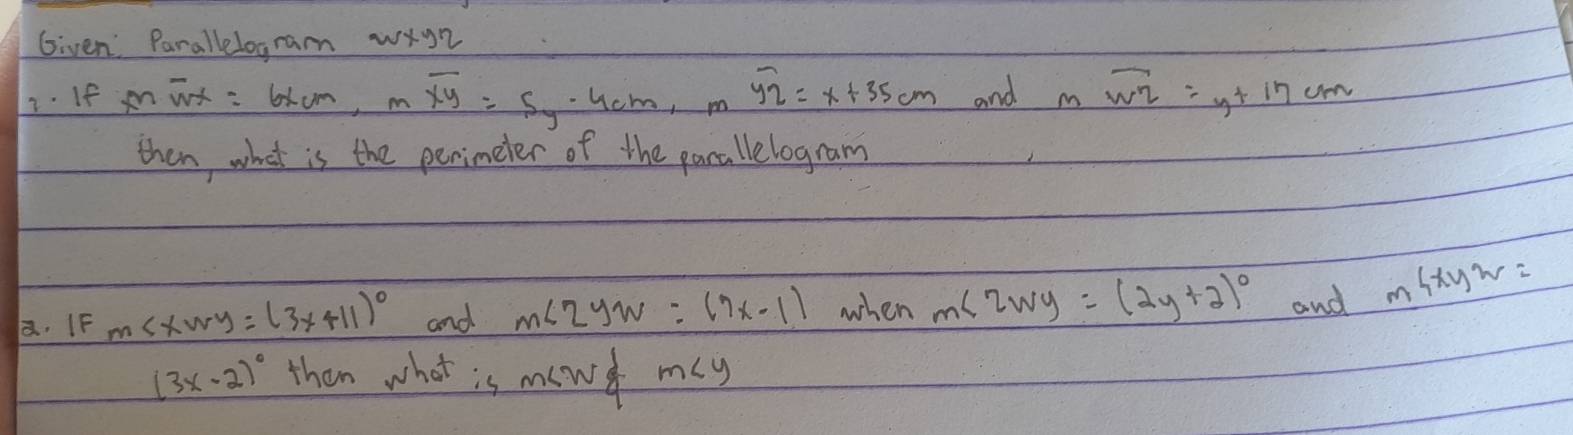 Given: Parallelogram wxyz
1. If m wx = 6xcm, m xy = 5y - 4cm, m yz = x+35cm and m wz = y+17 cm
then, what is the perimeter of the parallelogram
2. IF m<xwy = (3x+11)° and m<zyw = (7x-1) when m<zwy = (2y+2)° and m<xyw =
(3x-2)° then what is m<w & m<y